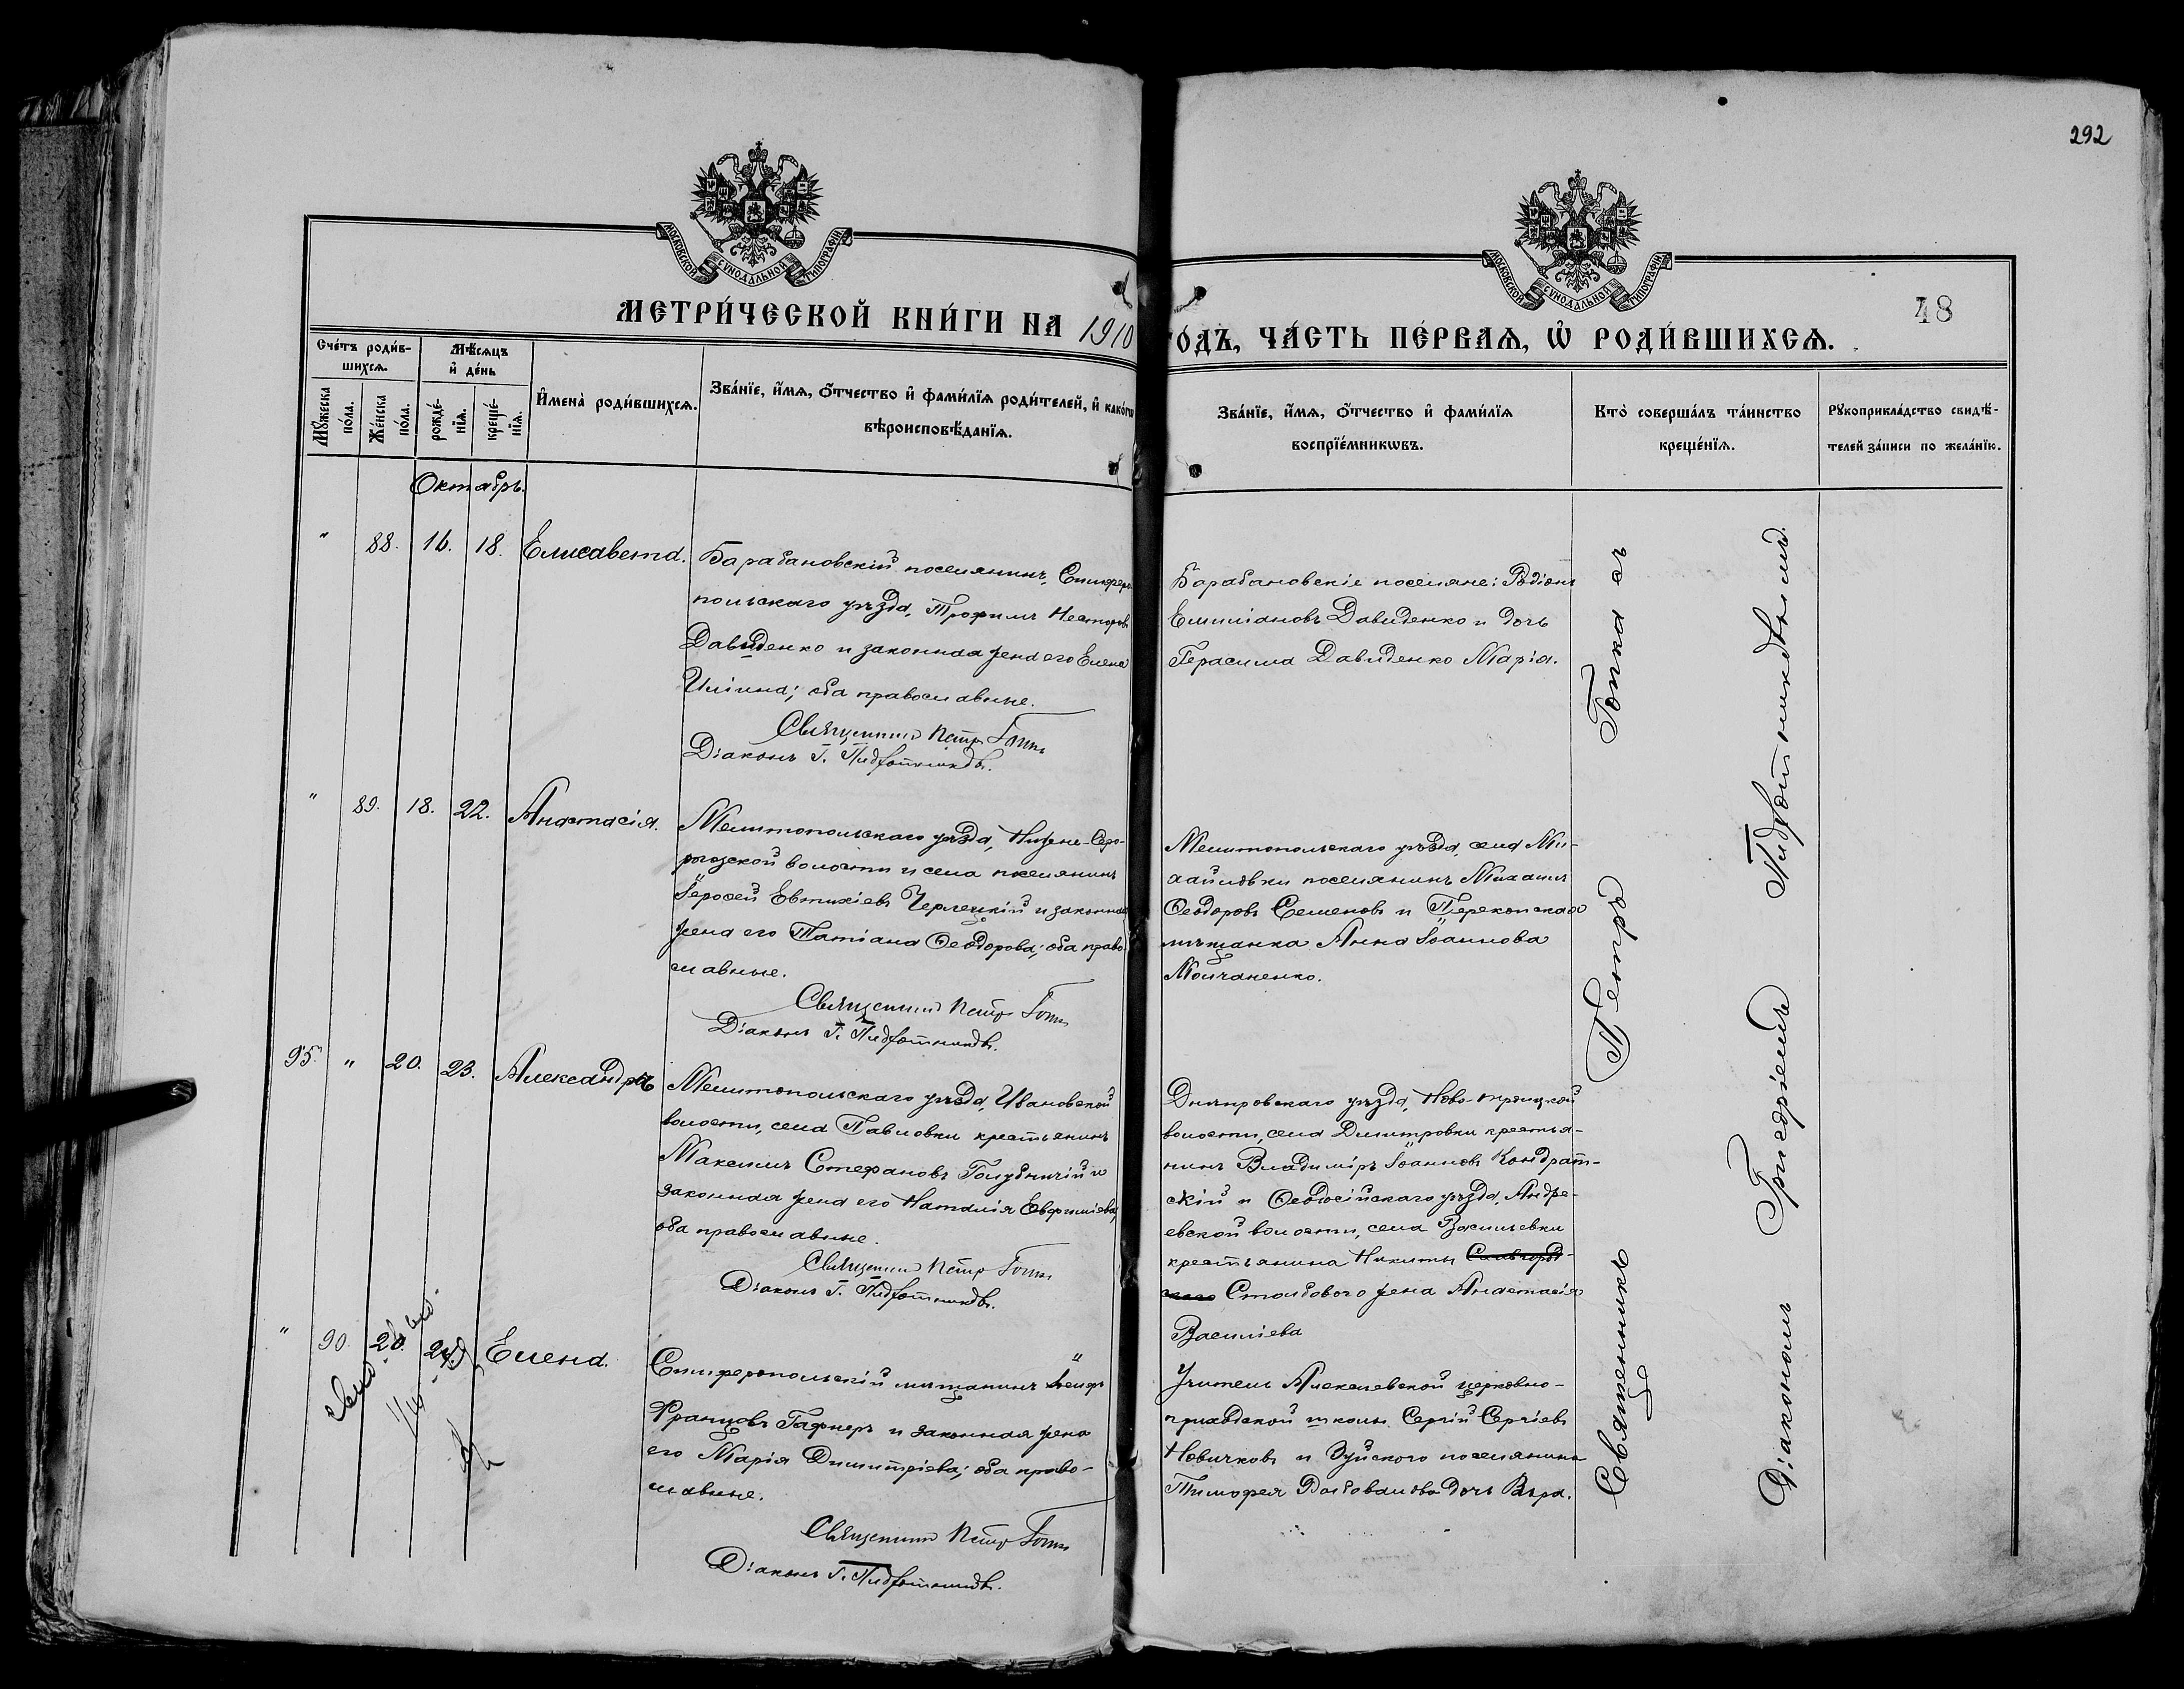 292
МОСКОВСКОЙ СѴНОДАЛЬНОЙ ТИПОГРАФІИ
МОСКОВСКОЙ СѴНОДАЛЬНОЙ ТИПОГРАФІИ
48
МЕТРИ́ЧЕСКОЙ КНИ́ГИ НА 1910
ГО́ДЪ, ЧА́СТЬ ПЕ́РВАѦ, Ѡ҆ РОДИ́ВШИХСѦ.
Сче́тъ роди́в-
шихсѧ.
Мѣ́сѧцъ
и҆ де́нь
Мꙋ́жеска
по́ла.
Же́нска
по́ла.
рожде́-
нїѧ.
креще́-
нїѧ.
И҆мена̀ роди́вшихсѧ.
Зва́нїе, и҆́мѧ, ѻ҆́тчество и҆ фами́лїѧ роди́телей, и҆ како́гѡ
вѣроисповѣ́данїѧ.
Зва́нїе, и҆́мѧ, ѻ҆́тчество и҆ фами́лїѧ
воспрїе́мникѡвъ.
Кто̀ соверша́лъ та́инство
креще́нїѧ.
Рꙋкоприкла́дство свидѣ́-
телей за́писи по жела́нїю.
Октябрь.
" 88. 16. 18. Елисавета.
Барабановскій поселянинъ, Симферо
польскаго уѣзда, Трофимъ Несторовъ
Давиденко и законная жена его Елена
Иліина; оба православные.
Священникъ Петръ Гопка
Діаконъ Г. Пидготниковъ.
Барабановскіе поселяне: Родіонъ
Емиліановъ Давиденко и дочь
Герасима Давиденко Марія.
" 89. 18. 22. Анастасія.
Мелитопольскаго уѣзда, Нижне-Серо-
гозской волости и села поселянинъ
Іерофей Евтихіевъ Черлецкій и законная
жена его Татіана Ѳеодорова; оба право-
славные.
Священникъ Петръ Гопка
Діаконъ Г. Пидготниковъ.
Мелитопольскаго уѣзда, села Ми-
хайловки поселянинъ Михаилъ
Ѳеодоровъ Семеновъ и Перекопская
мѣщанка Анна Іоаннова
Молчаненко.
95. " 20. 23. Александръ
Мелитопольскаго уѣзда, Ивановской
волости, села Павловки крестьянинъ
Максимъ Стефановъ Голубничій и
законная жена его Наталія Евфиміева,
оба православные.
Священникъ Петръ Гопка
Діаконъ Г. Пидготниковъ.
Днѣпровскаго уѣзда, Ново-троицкой
волости, села Димитровки крестья-
нинъ Владиміръ Іоанновъ Кондрат-
скій и Ѳеодосійскаго уѣзда, Андре-
евской волости, села Васильевки
крестьянина Никиты
Столбового жена Анастасія
Василіева
" 90. 20. 24. Елена.
Симферопольскій мѣщанинъ Іосифъ
Францовъ Гафнеръ и законная жена
его Марія Димитріева; оба право-
славные.
Священникъ Петръ Гопка
Діаконъ Г. Пидготниковъ.
Учитель Алексѣевской церковно-
приходской школы Сергій Сергіевъ
Новичковъ и Зуйского поселянина
Тимофея дочь Вѣра.
Священникъ Петръ Гопка съ
Діакономъ Григоріемъ Пидготниковымъ.